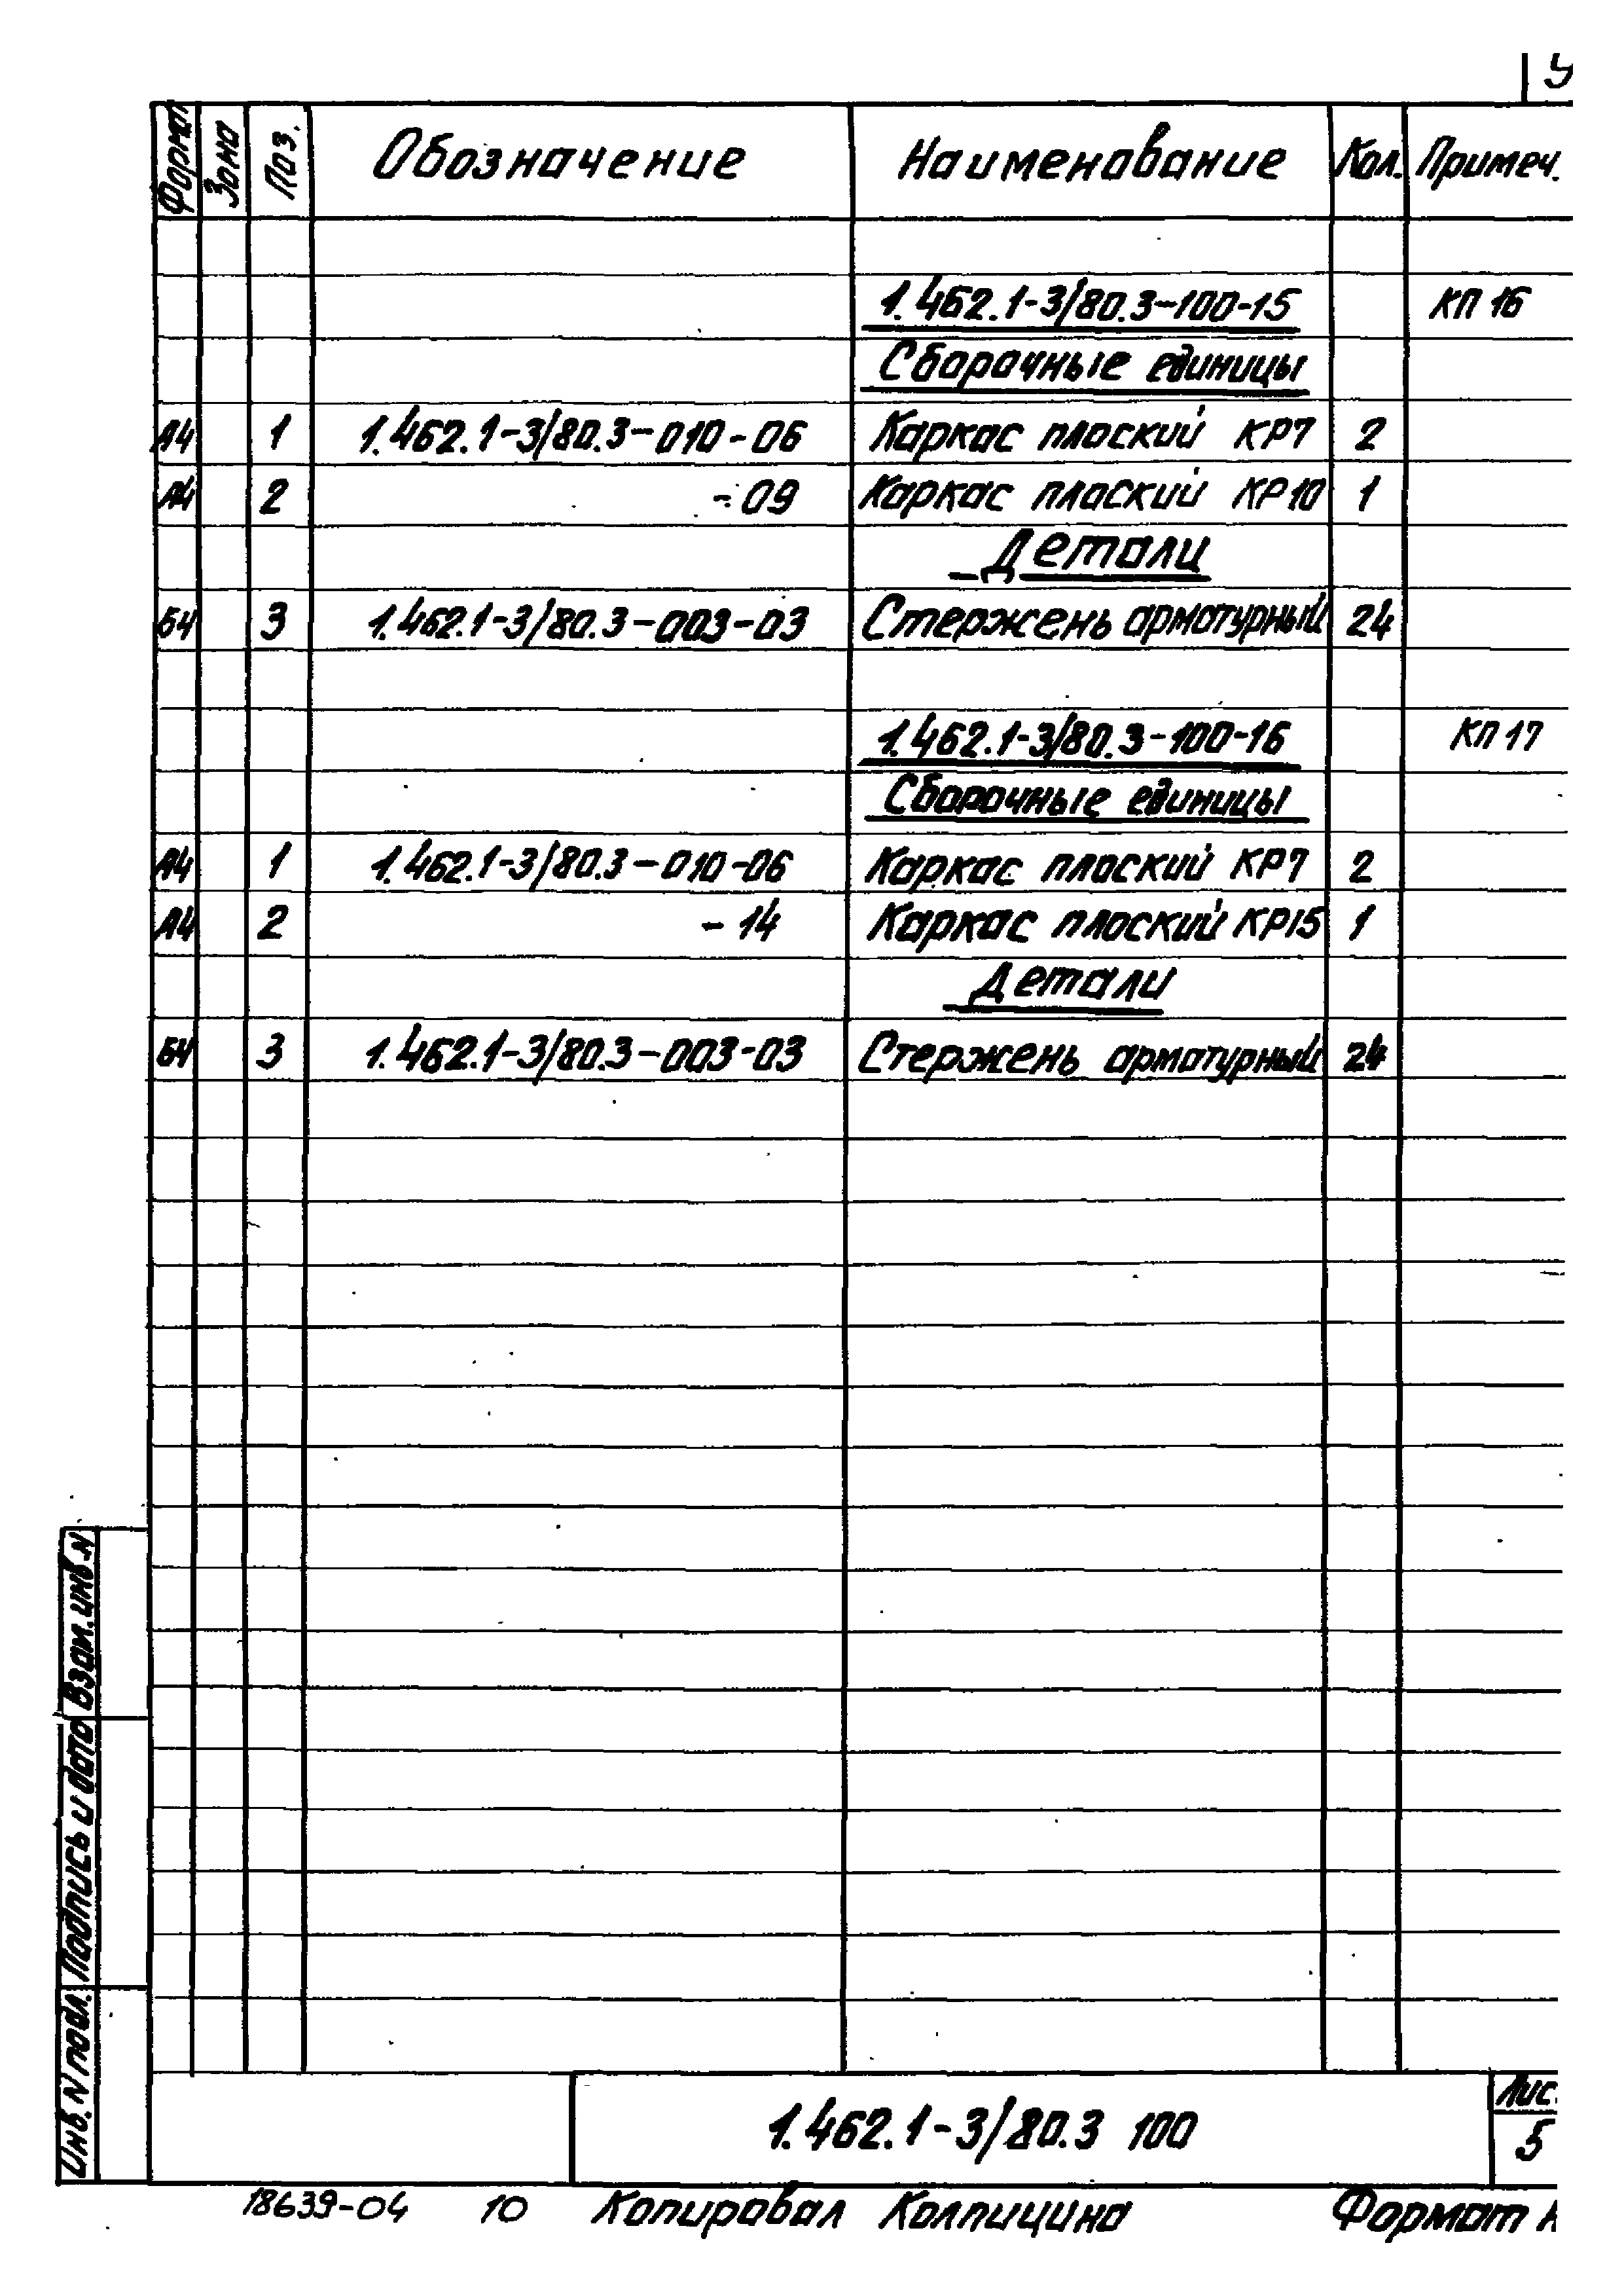 9
Формат Зона Поз. Обозначение Наименование Кол. Примеч.
1.462.1-3/80.3-100-15 КП 16
Сборочные единицы
А4 1 1.462.1-3/80.3-010-06 Каркас плоский КР7 2
А4 2 -09 Каркас плоский КР10 1
Детали
БЧ 3 1.462.1-3/80.3-003-03 Стержень арматурный 24
1.462.1-3/80.3-100-16 КП 17
Сборочные единицы
А4 1 1.462.1-3/80.3-010-06 Каркас плоский КР7 2
А4 2 -14 Каркас плоский КР15 1
Детали
БЧ 3 1.462.1-3/80.3-003-03 Стержень арматурный 24
Взам. инв. N
Подпись и дата
Инв. N подл.
1.462.1-3/80.3 100
Лис
5
18639-04 10 Копировал Колпицина Формат А